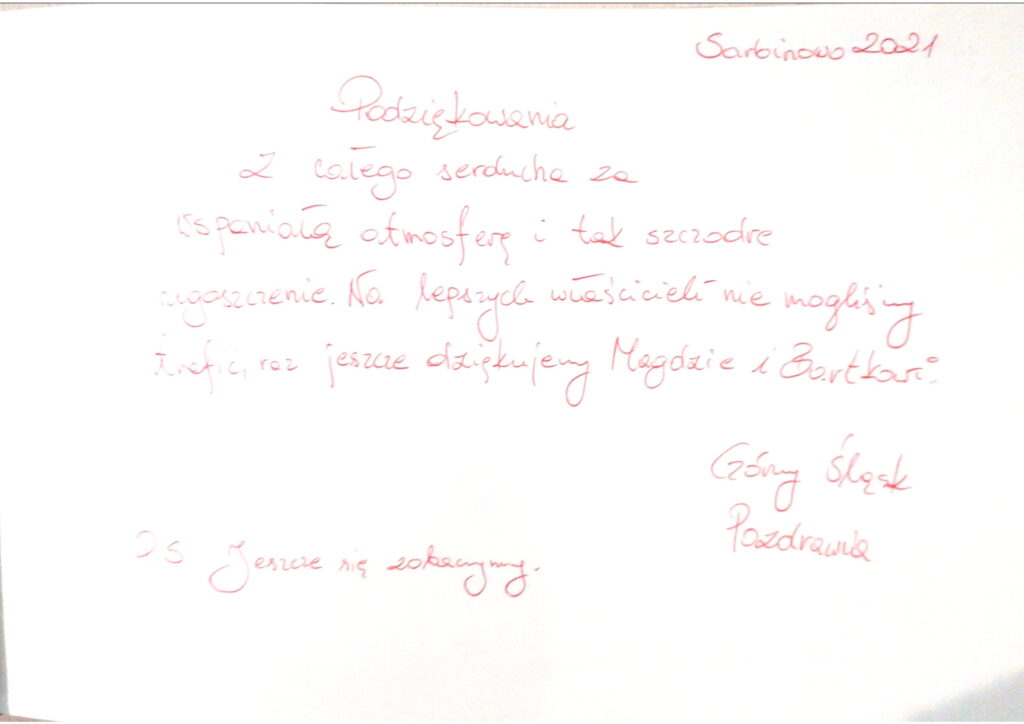 Sarbinowo 2021
Podziękowania
Z całego serducha za
wspaniałą atmosferę i tak szczodre
ugoszczenie. Na lepszych właścicieli nie mogliśmy
trafić, raz jeszcze dziękujemy Magdzie i Bartkowi.
Górny Śląsk
Pozdrawia
P.S Jeszcze się zobaczymy.